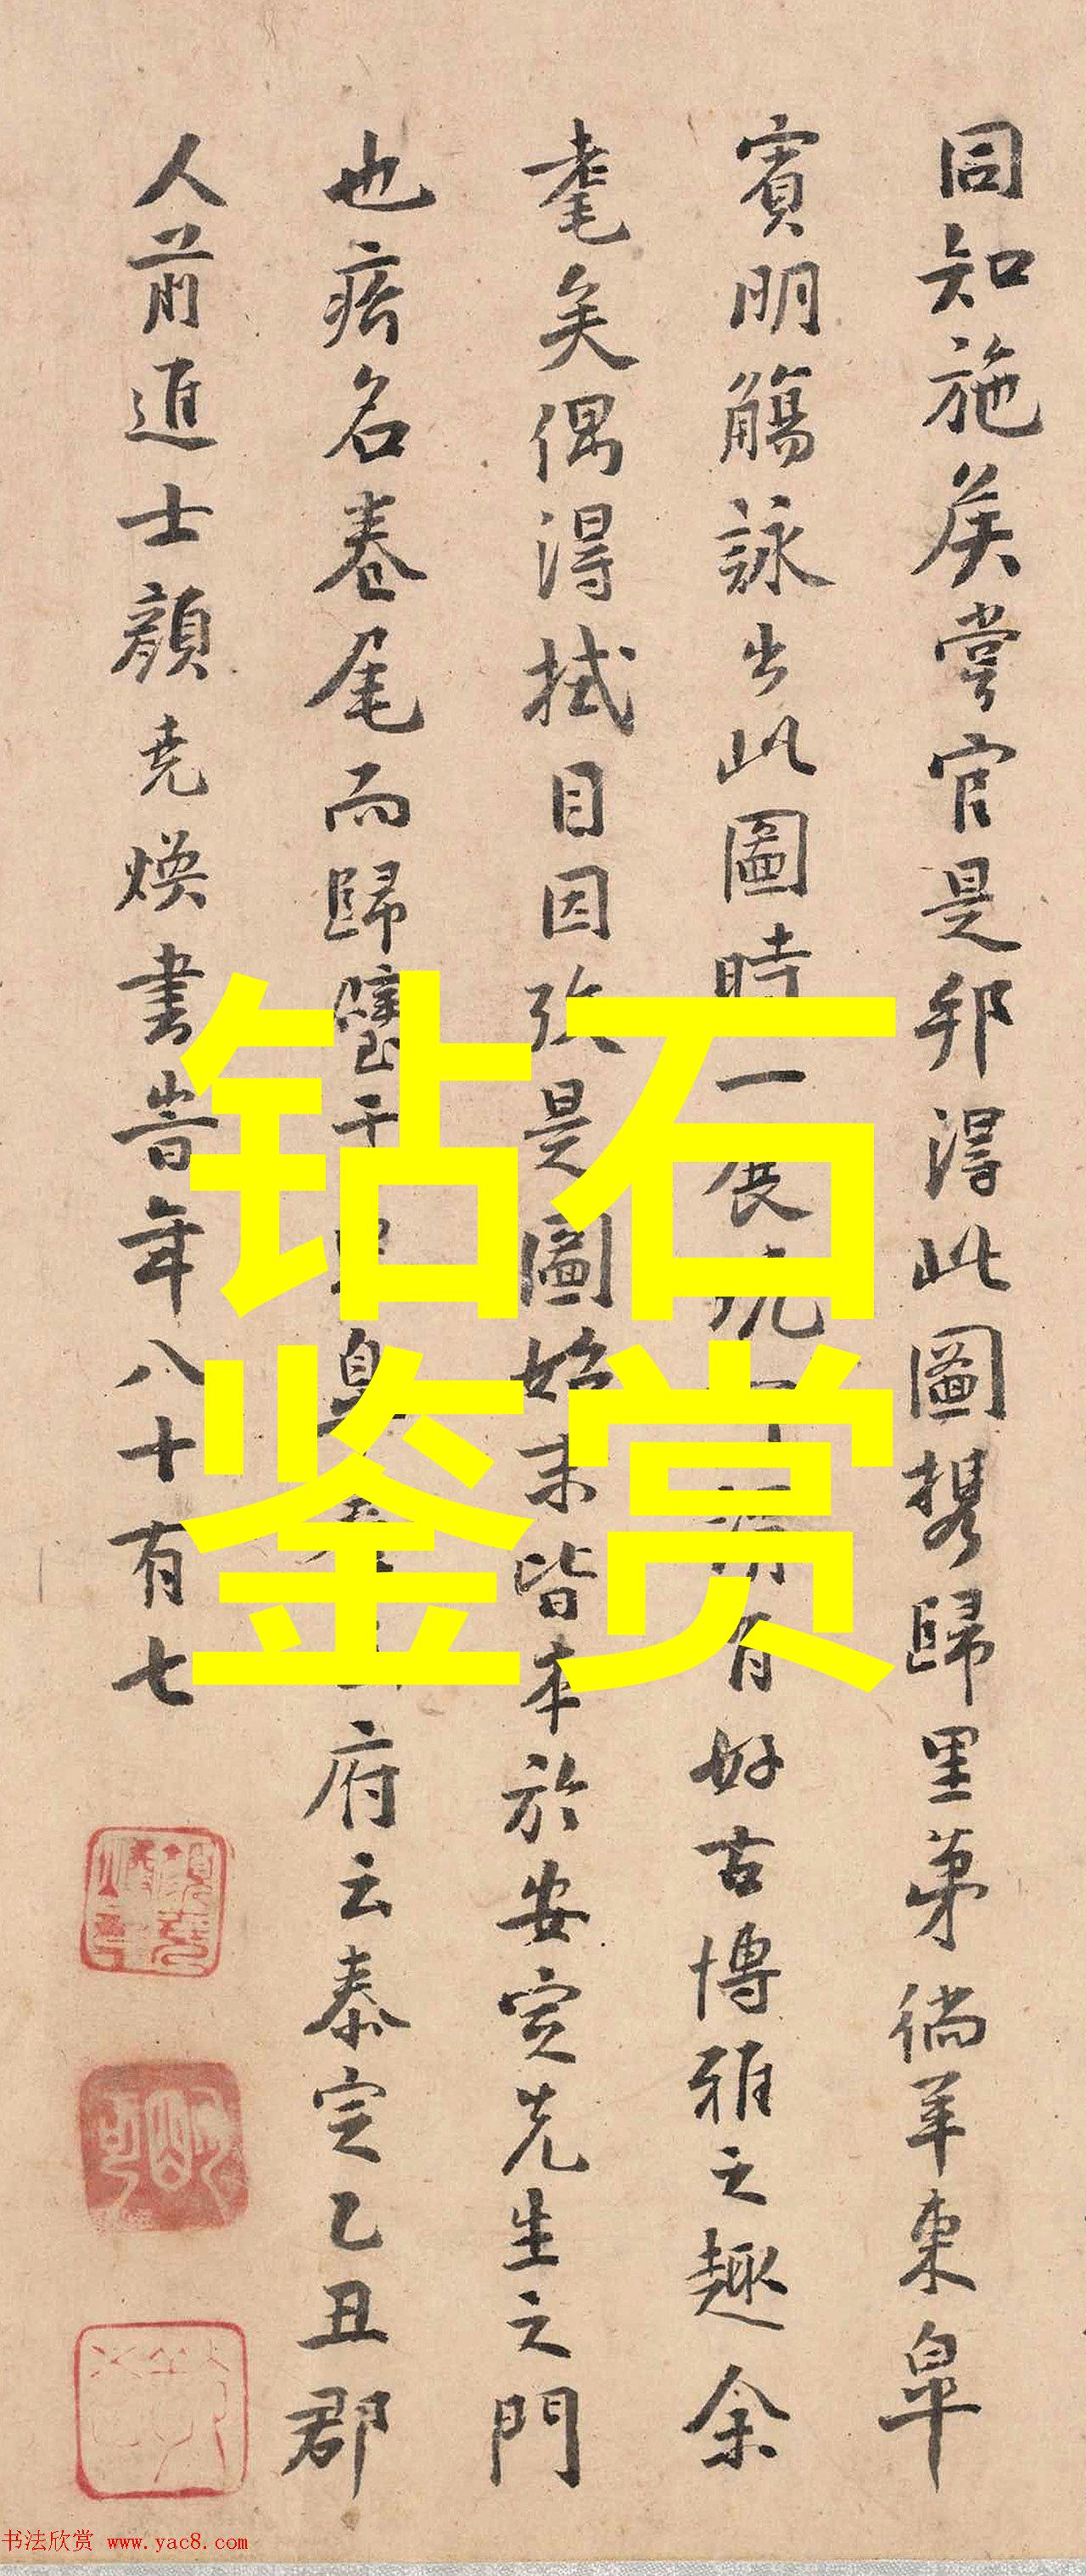 同知施矦嘗官是邦淂此圖携歸里苐徜羊東皐
賓明觴詠出此圖時一展玩有好古博雅之趣余
耄矣偶淂拭目因攷是圖始末皆本於安定先生之門
也瘔名卷尾而歸璧于府云泰定乙丑郡
人前進士顏堯煥書旹年八十有七
钻石
鉴赏
书法欣赏 www.yac8.com